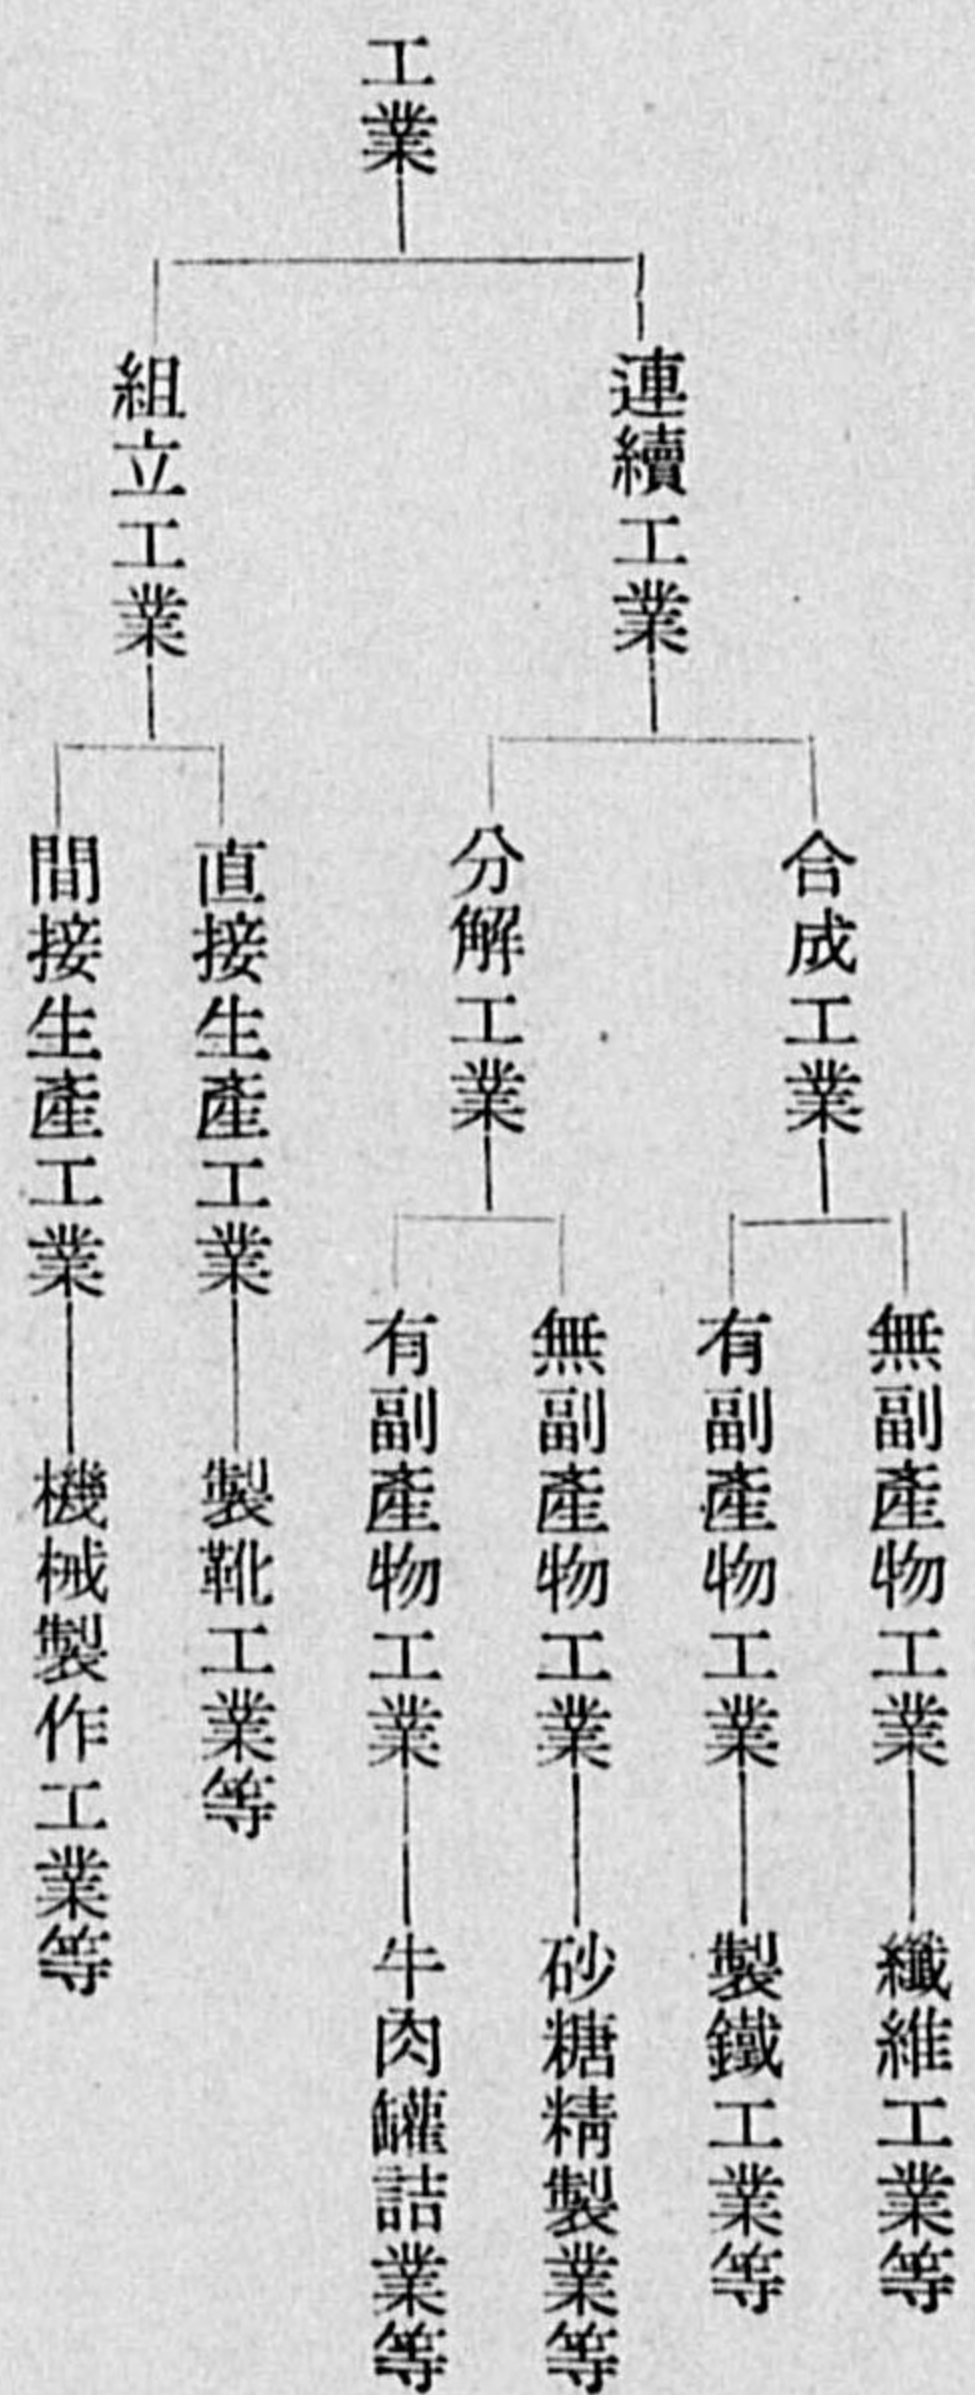 工業
連續工業
合成工業
無副產物工業
纖維工業等
有副產物工業
製鐵工業等
分解工業
無副產物工業
砂糖精製業等
有副產物工業
牛肉罐詰業等
組立工業
直接生產工業
製靴工業等
間接生產工業
機械製作工業等